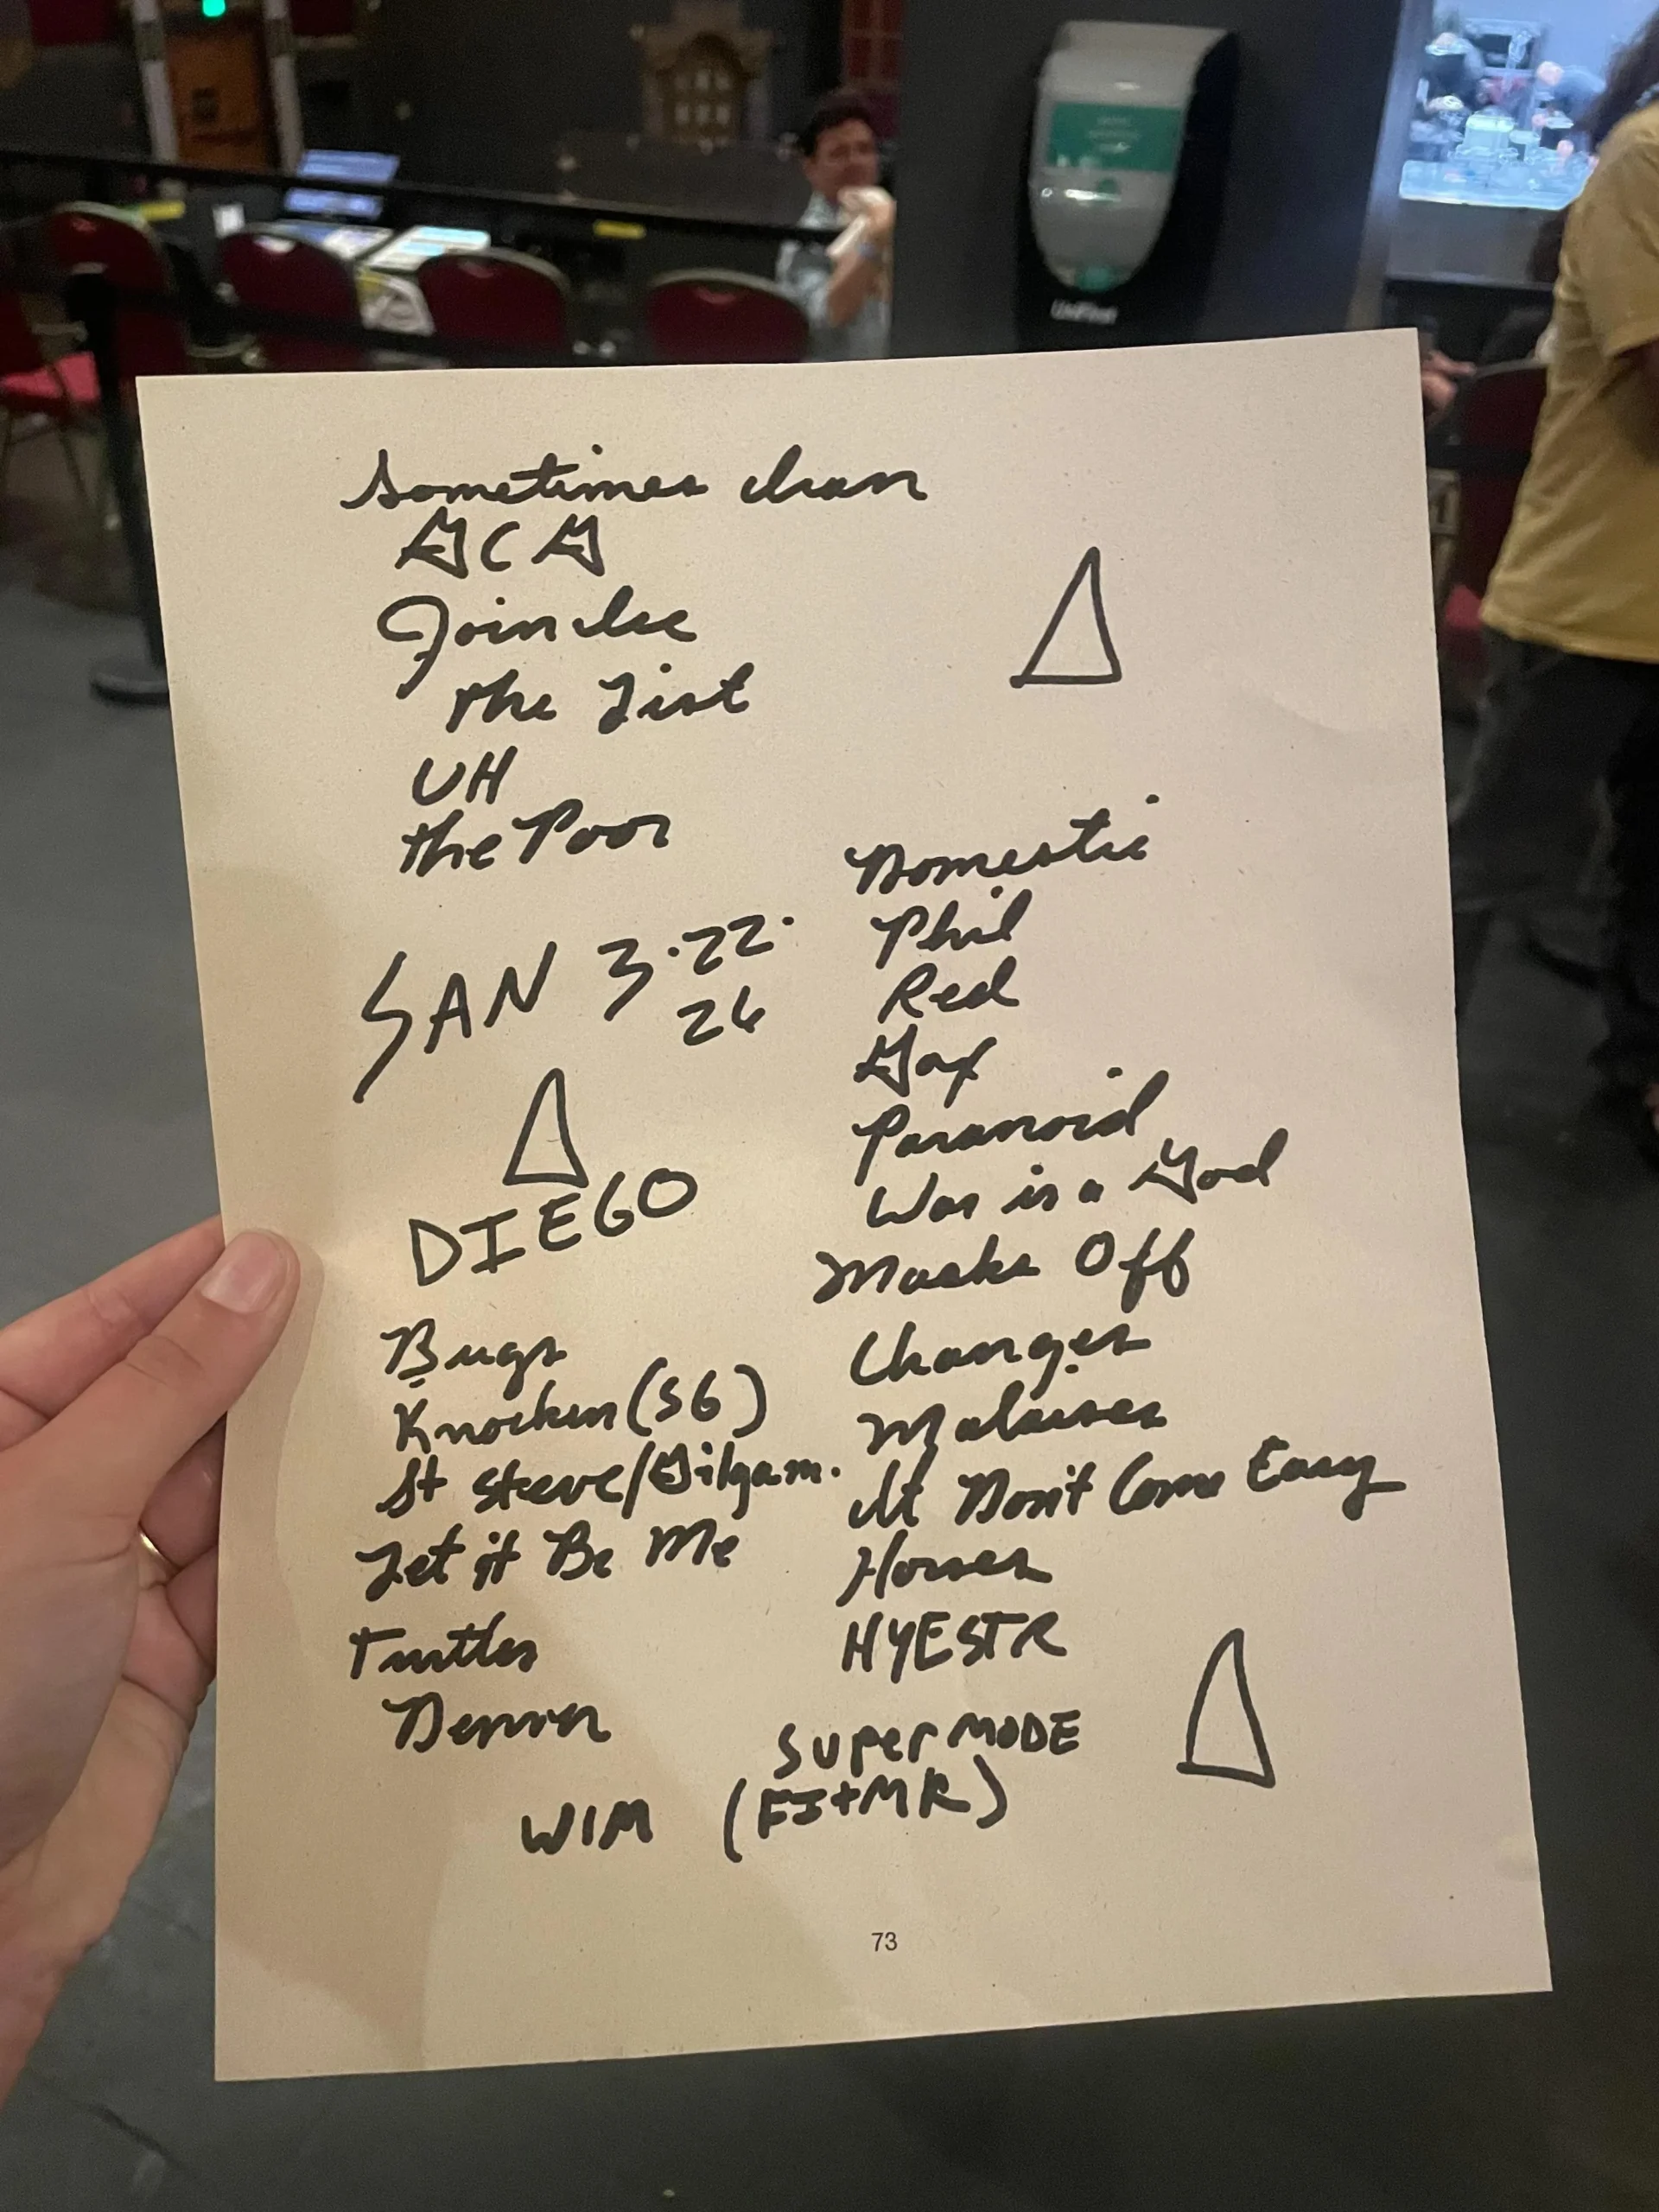 Sometimes chan
GCG
Join ilse
the List
UH
the Poor
SAN 3.22.
26
DIEGO
Bugs
Knockin (SG)
St Steve/Gilgam.
Let it Be Me
Turtles
Denver
WIM
Domestic
Phil
Red
Gax
Paranoid
War is a God
Masks Off
Changes
Malaises
It Don't Come Easy
Horses
HYESTR
SUPER MODE
(FI+MR)
73
UniFirst